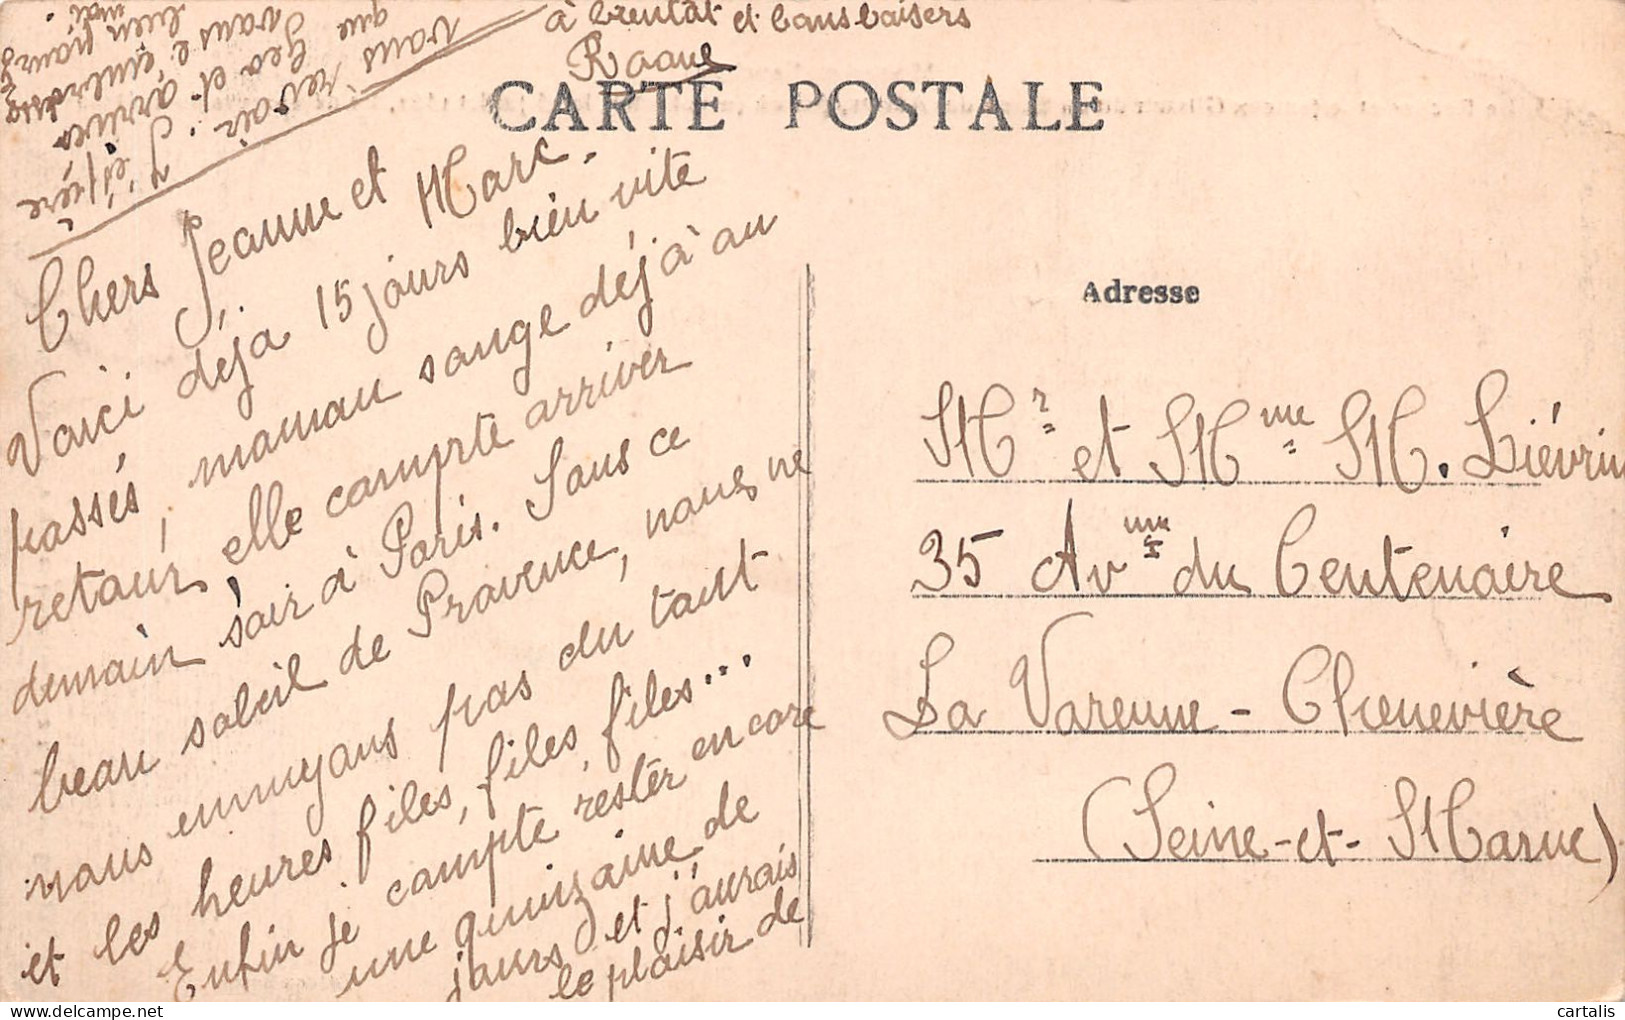 à bientôt et bons baisers
Roger
CARTE POSTALE
Chers Jeanne et Marc.
Voici déja 15 jours bien vite
passés, maman songe déjà au
retour, elle compte arriver
demain soir à Paris. Sous ce
beau soleil de Provence, nous ne
nous ennuyons pas du tout
et les heures files, files, files...
Enfin je compte rester encore
une quinzaine de
jours et j'aurais
le plaisir de
vous revoir. J'espère
que Geo et
Adresse
Mr et Mme M. Liévrin
35 Avnue du Centenaire
La Varenne - Chenevière
(Seine-et-Marne)
cartalis